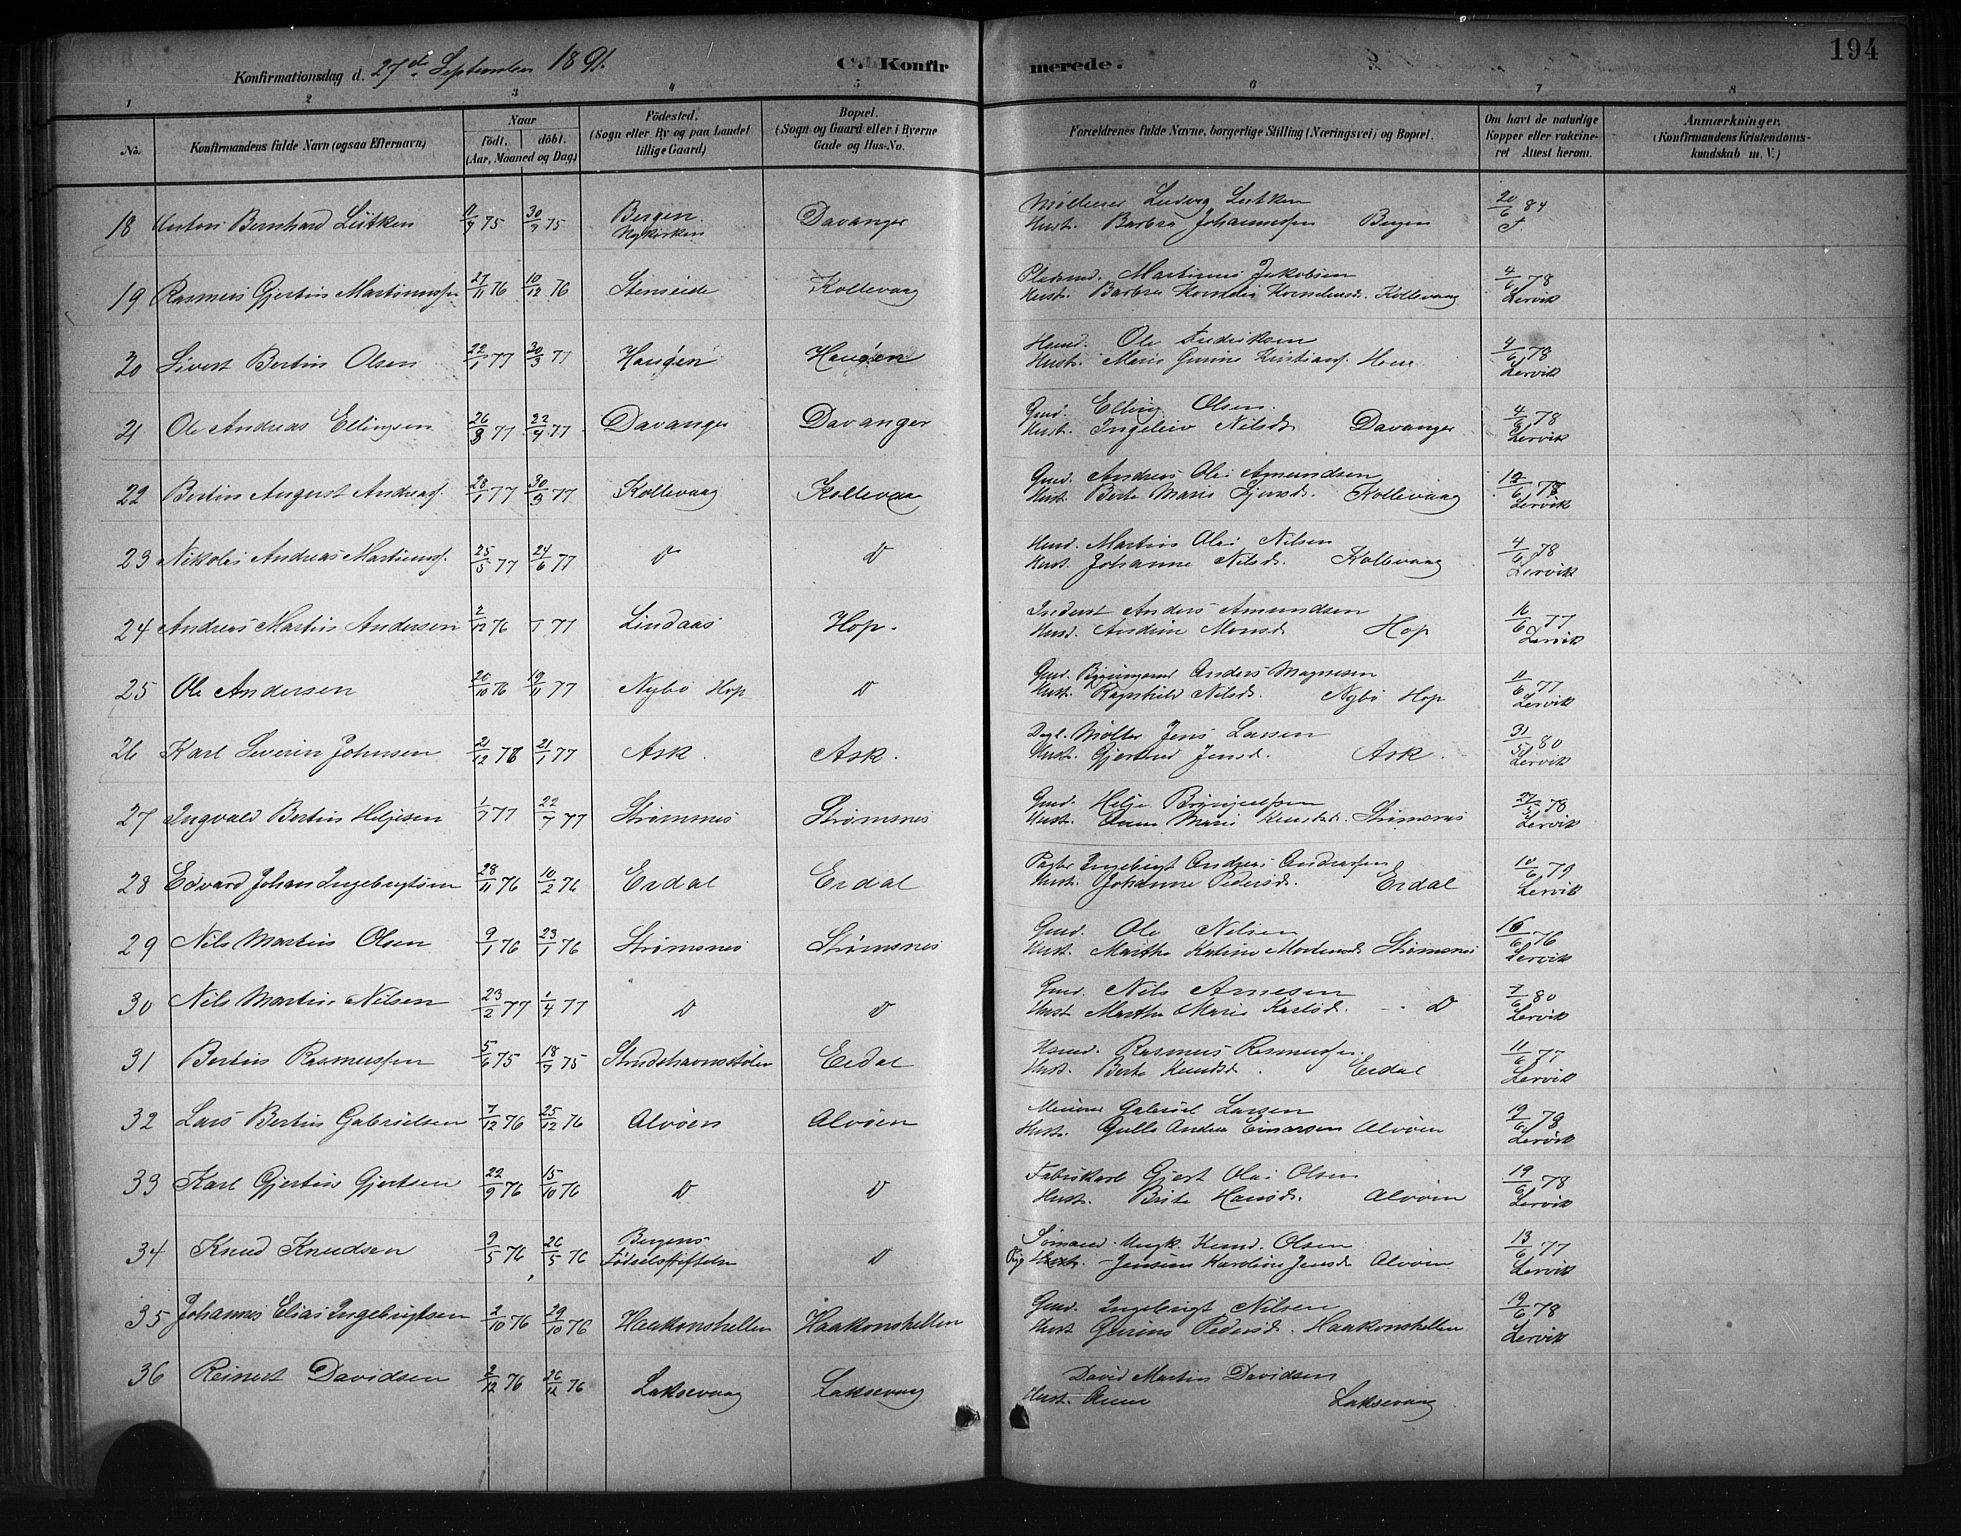 194
Konfirmationsdag d. 27de September 1891.
C. Konfirmerede.
1 2 3 4 5 6 7 8
No.
Konfirmandens fulde Navn (ogsaa Efternavn)
Naar
født. døbt.
(Aar, Maaned og Dag)
Födested.
(Sogn eller By og paa Landet
tillige Gaard)
Bopæl.
(Sogn og Gaard eller i Byerne
Gade og Hus-No.
Forældrenes fulde Navne, borgerlige Stilling (Næringsvei) og Bopæl.
Om havt de naturlige
Kopper eller vakcine-
ret Attest herom.
Anmærkninger.
(Konfirmandens Kristendoms-
kundskab m. V.)
18 Anton Bernhard Lütken 75 30/7 75 Bergen Nykirken Davanger
Ludvig Lütken
Hust. Barbra Johannessen Bergen
20/6 84
19 Rasmus Gjertius Martinussen 27/11 76 10/12 76 Stenseide Kollevaag
Martinus Jakobsen
Hust. Barbra Kollevaag
4/6 78 Lervik
20 Sivert Bertin Olsen 22/1 77 30/3 77 Haugen Haugen
Husmd. Ole Fredriksen
Hust. Maris Gurine Kristians.
4/6 78 Lervik
21 Ole Andreas Ellingsen 26/3 77 22/4 77 Davanger Davanger
Gmd. Elling Olsen.
Hust. Ingeleiv Nilsd. Davanger
4/6 78 Lervik
22 Bertin August Andreass. 28/1 77 30/3 77 Kollevaag Kollevaa
Gmd. Andreas Olai Amundsen
Hust. Berte Marie Kollevaag
12/6 78 Lervik
23 Nikolai Andreas Martinuss. 25/5 77 24/6 77 D D
Husmd. Martin Olai Nilsen
Hust. Johanne Nilsd. Kollevaag
4/6 78 Lervik
24 Andreas Martin Andersen 2/12 76 77 Lindaas Hop.
Inderst Anders Amundsen
Hust. Andrine Monsd. Hop
16/6 77 Lervik
25 Ole Andersen 20/10 76 19/11 77 Nybø Hop D
Gmd. Anders Magnesen
Hust. Ragnhild Nilsd. Nybø Hop
11/6 77 Lervik
26 Karl Severin Johnsen 21/12 76 21/1 77 Ask. Ask.
Møller Jens Larsen
Hust. Gjertrud Jensd. Ask.
31/5 80 Lervik
27 Ingvald Bertin Heljesen 1/7 77 22/7 77 Strømsnes Strømsnes
Gmd. Helje
Hust. Anne Marie Knudsd. Strømsnes
27/5 78 Lervik
28 Edvard Johan Ingebrigtsen 28/11 76 10/2 76 Erdal Erdal
Ingebrigt Andreas Andreassen
Hust. Johanne Pedersd. Erdal
10/6 79 Lervik
29 Nils Martin Olsen 9/1 76 23/1 76 Strømsnes Strømsnes
Gmd. Ole Nilsen
Hust. Martha Katrine Mortensd. Strømsnes
16/6 76 Lervik
30 Nils Martin Nilsen 23/2 77 1/4 77 D D
Gmd. Nils Arnesen
Hust. Martha Marie Karlsd. D
7/6 80 Lervik
31 Bertin Rasmussen 5/6 75 18/7 75 Strudshavnsstølen Erdal
Husmd. Rasmus Rasmussen.
Hust. Berte Knudsd. Erdal
11/6 77 Lervik
32 Lars Bertin Gabrielsen 7/12 76 25/12 76 Alvøen Alvøen
Gabriel Larsen
Hust. Gulle Andrea Einarsen Alvøen
19/6 78 Lervik
33 Karl Gjertin Gjertsen 22/9 76 15/10 76 D D
Fabrikarb. Gjert Olai Olsen
Hust. Brite Hansd. Alvøen
19/6 78 Lervik
34 Knud Knudsen 9/5 76 26/5 76 Bergens Fødselsstiftelse D
Sømand Ungk. Knud Olsen
Pige Jensine Karoline Jensd. Alvøen
13/6 77 Lervik
35 Johannes Elias Ingebrigtsen 2/10 76 29/10 76 Haakonshellen Haakonshellen
Gmd. Ingebrigt Nilsen
Hust. Gurine Pedersd. Haakonshellen
19/6 78 Lervik
36 Reinert Davidsen 2/12 76 26/12 76 Laksevaag Laksevaag
David Martin Davidsen
Hust. Anne Laksevaag